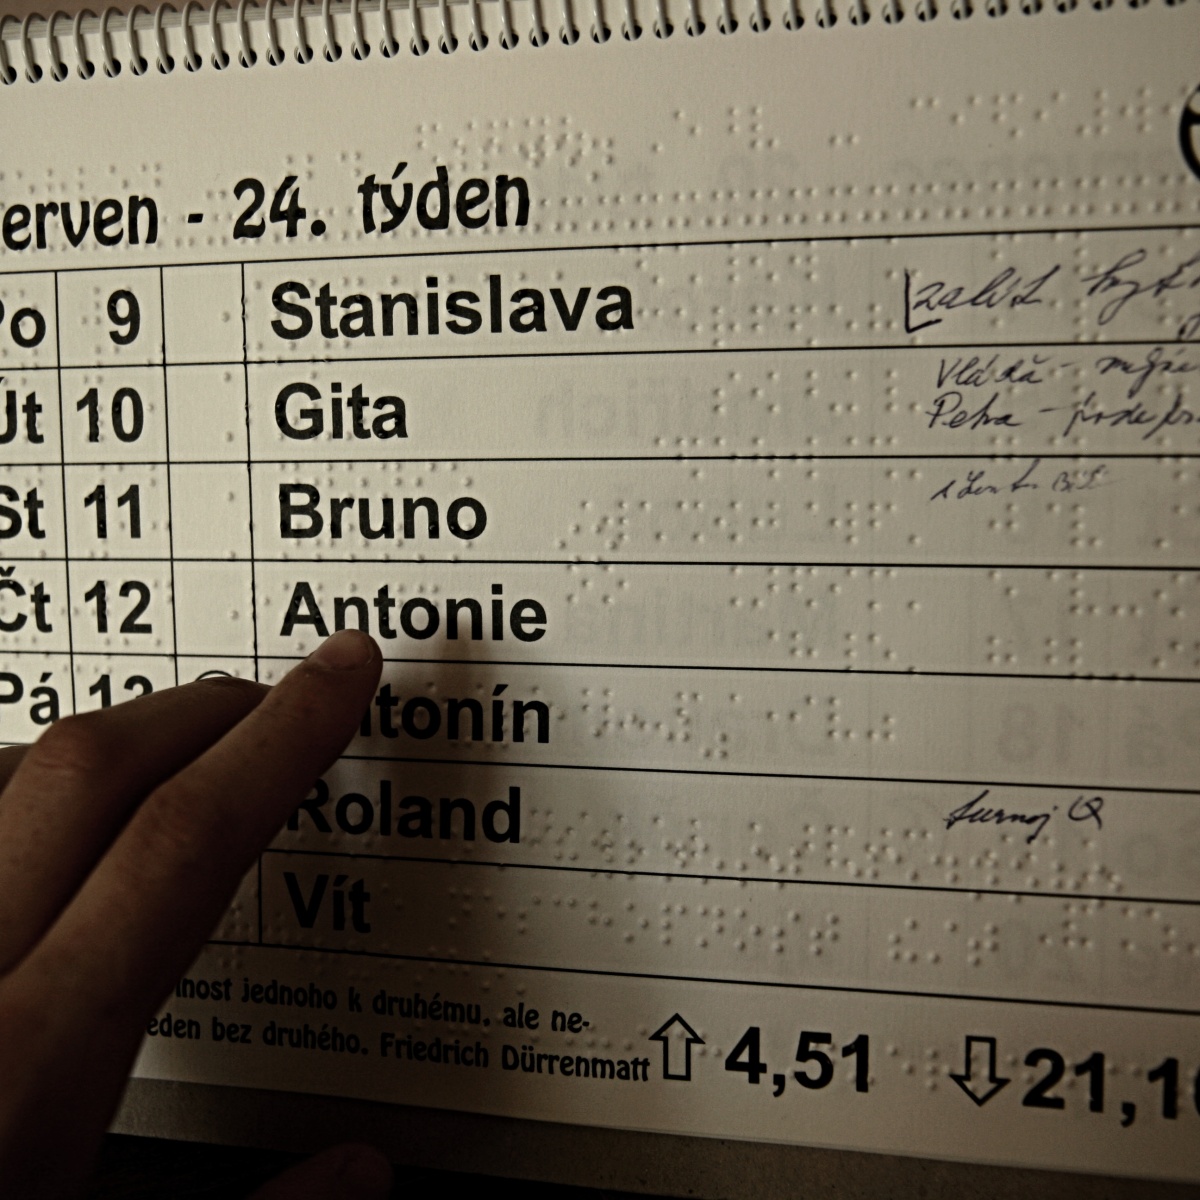 erven - 24. týden
Po 9 Stanislava zalít
Út 10 Gita Vláďa -
Petra -
St 11 Bruno
Čt 12 Antonie
Pá 13 ntonín
Roland turnaj
Vít
lnost jednoho k druhému, ale ne-
eden bez druhého. Friedrich Dürrenmatt
4,51 21,1